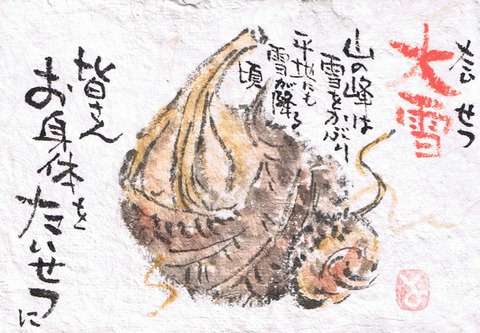 大雪
たい せつ
山の峰は
雪をかぶり
平地にも
雪が降る
頃
皆さん
お身体を
たいせつに